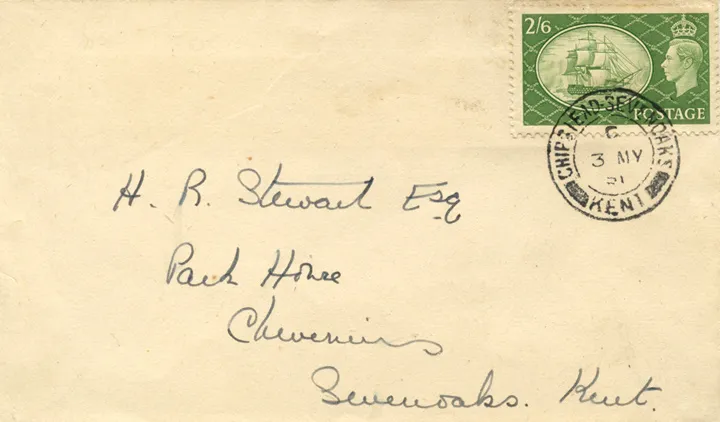 2/6
POSTAGE
CHIPSTEAD-SEVENOAKS
C
3 MY
51
KENT
H. R. Stewart Esq
Park House
Chevening
Sevenoaks. Kent.